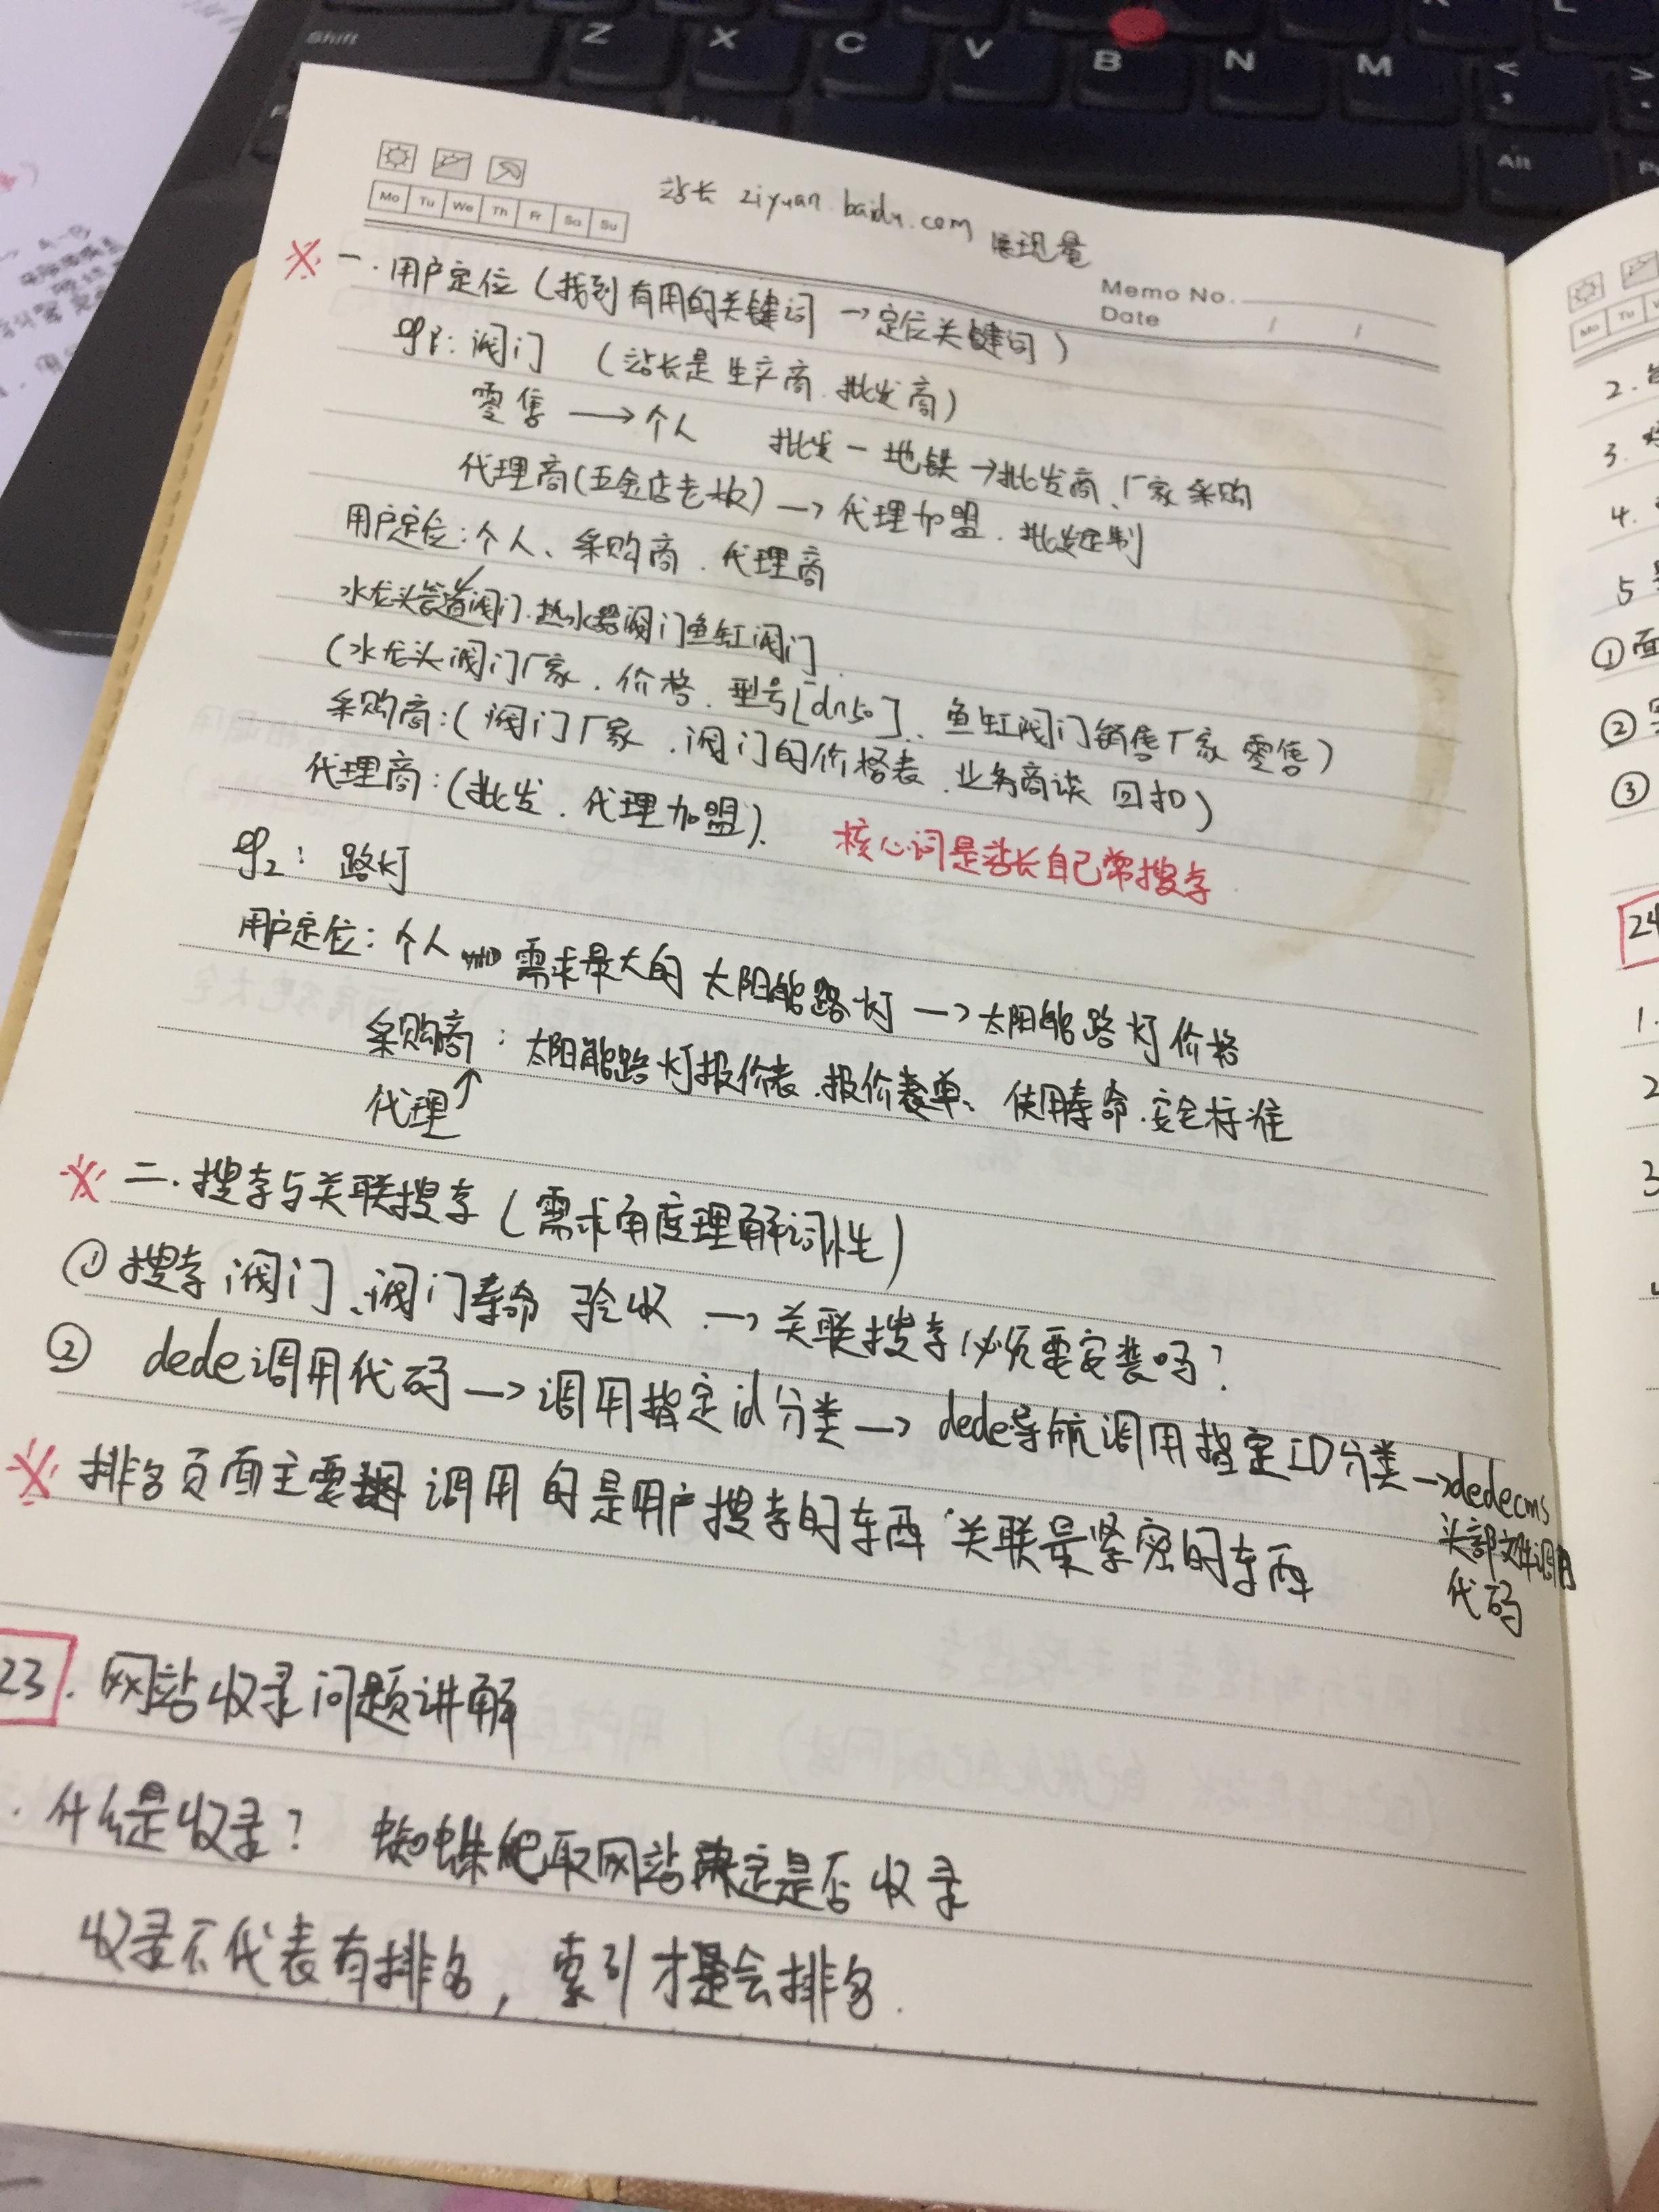 Shift Z X C V B N M <
Alt
Mo Tu We Th Fr Sa Su
站长 ziyuan.baidu.com 展现量
Memo No.
Date / /
※ 一.用户定位(找到有用的关键词→定位关键词)
eg1:阀门 (站长是生产商.批发商)
零售→个人 批发-地铁→批发商、厂家采购
代理商(五金店老板)→代理加盟.批发定制
用户定位:个人、采购商.代理商
水龙头管道阀门.热水器阀门鱼缸阀门
(水龙头阀门厂家.价格.型号[dn50]、鱼缸阀门销售厂家零售)
采购商:(阀门厂家.阀门的价格表.业务商谈 回扣)
代理商:(批发.代理加盟).
核心词是站长自己常搜索
eg2:路灯
用户定位:个人 需求最大的 太阳能路灯→太阳能路灯价格
采购商:太阳能路灯报价表.报价表单、使用寿命.安全标准
代理↑
※ 二.搜索与关联搜索(需求角度理解词性)
① 搜索阀门、阀门寿命 验收→关联搜索必须要安装吗?
② dede调用代码→调用指定id分类→dede导航调用指定ID分类→dedecms
头部文件调用
代码
※ 排名页面主要 调用的是用户搜索的东西 关联最紧密的东西
23.网站收录问题讲解
.什么是收录? 蜘蛛爬取网站决定是否收录
收录不代表有排名,索引才是会排名.
Mo Tu
2.
3.
4.
5
①面
②
③
24
1.
2
3